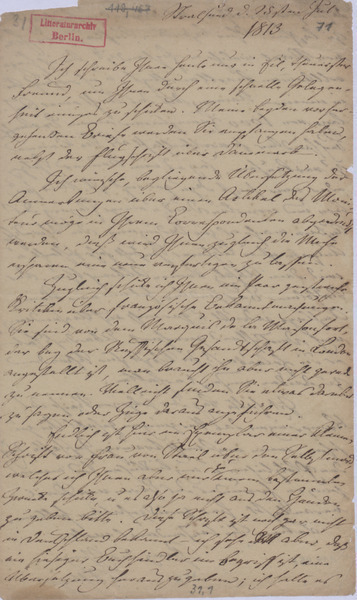 Litteraturarchiv
Berlin.
71
Stralsund d. 28sten Jul.
1813
Ich schreibe Ihnen heute nur in Eil, theuerster
Freund, um Ihnen durch eine schnelle Gelegen-
heit einiges zu schicken. Meine beyden vorher-
gehenden Briefe werden Sie empfangen haben,
nebst der Flugschrift über Dännemark.
Ich wünsche, beyliegende Übersetzung der
Anmerkungen über einen Artikel des Moni-
teur möge in Ihrem Correspondenten abgedruckt
werden, dieß wird Ihnen zugleich die Mühe
ersparen eine neue anfertigen zu lassen.
Zugleich schicke ich Ihnen ein Paar
Artikel über französische Bekanntmachungen.
Sie sind von dem Marquis de la Maisonfort,
der bey der Russischen Gesandtschaft in London
angestellt ist, man braucht ihn aber nicht gerade
zu nennen. Vielleicht finden Sie etwas darüber
zu sagen oder Züge daraus anzuführen.
Endlich ist hier ein Exemplar einer kleinen
Schrift der Frau von Staël über den Selbstmord
welches ich Ihnen aber
schicke und es ja nicht aus den Händen
zu geben bitte. Diese Schrift ist noch gar nicht
in Deutschland bekannt, ich sehe aber, daß
ein hiesiger Buchhändler im Begriff ist, eine
Übersetzung herauszugeben; ich halte es